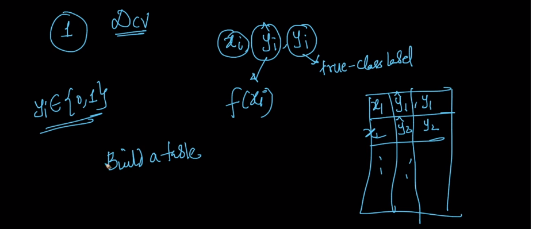 1 Dcv
xᵢ, ŷᵢ, yᵢ
true-class label
f(xᵢ)
yᵢ ∈ {0,1}
Build a table
x₁ ŷ₁, y₁
x₂ ŷ₂ y₂